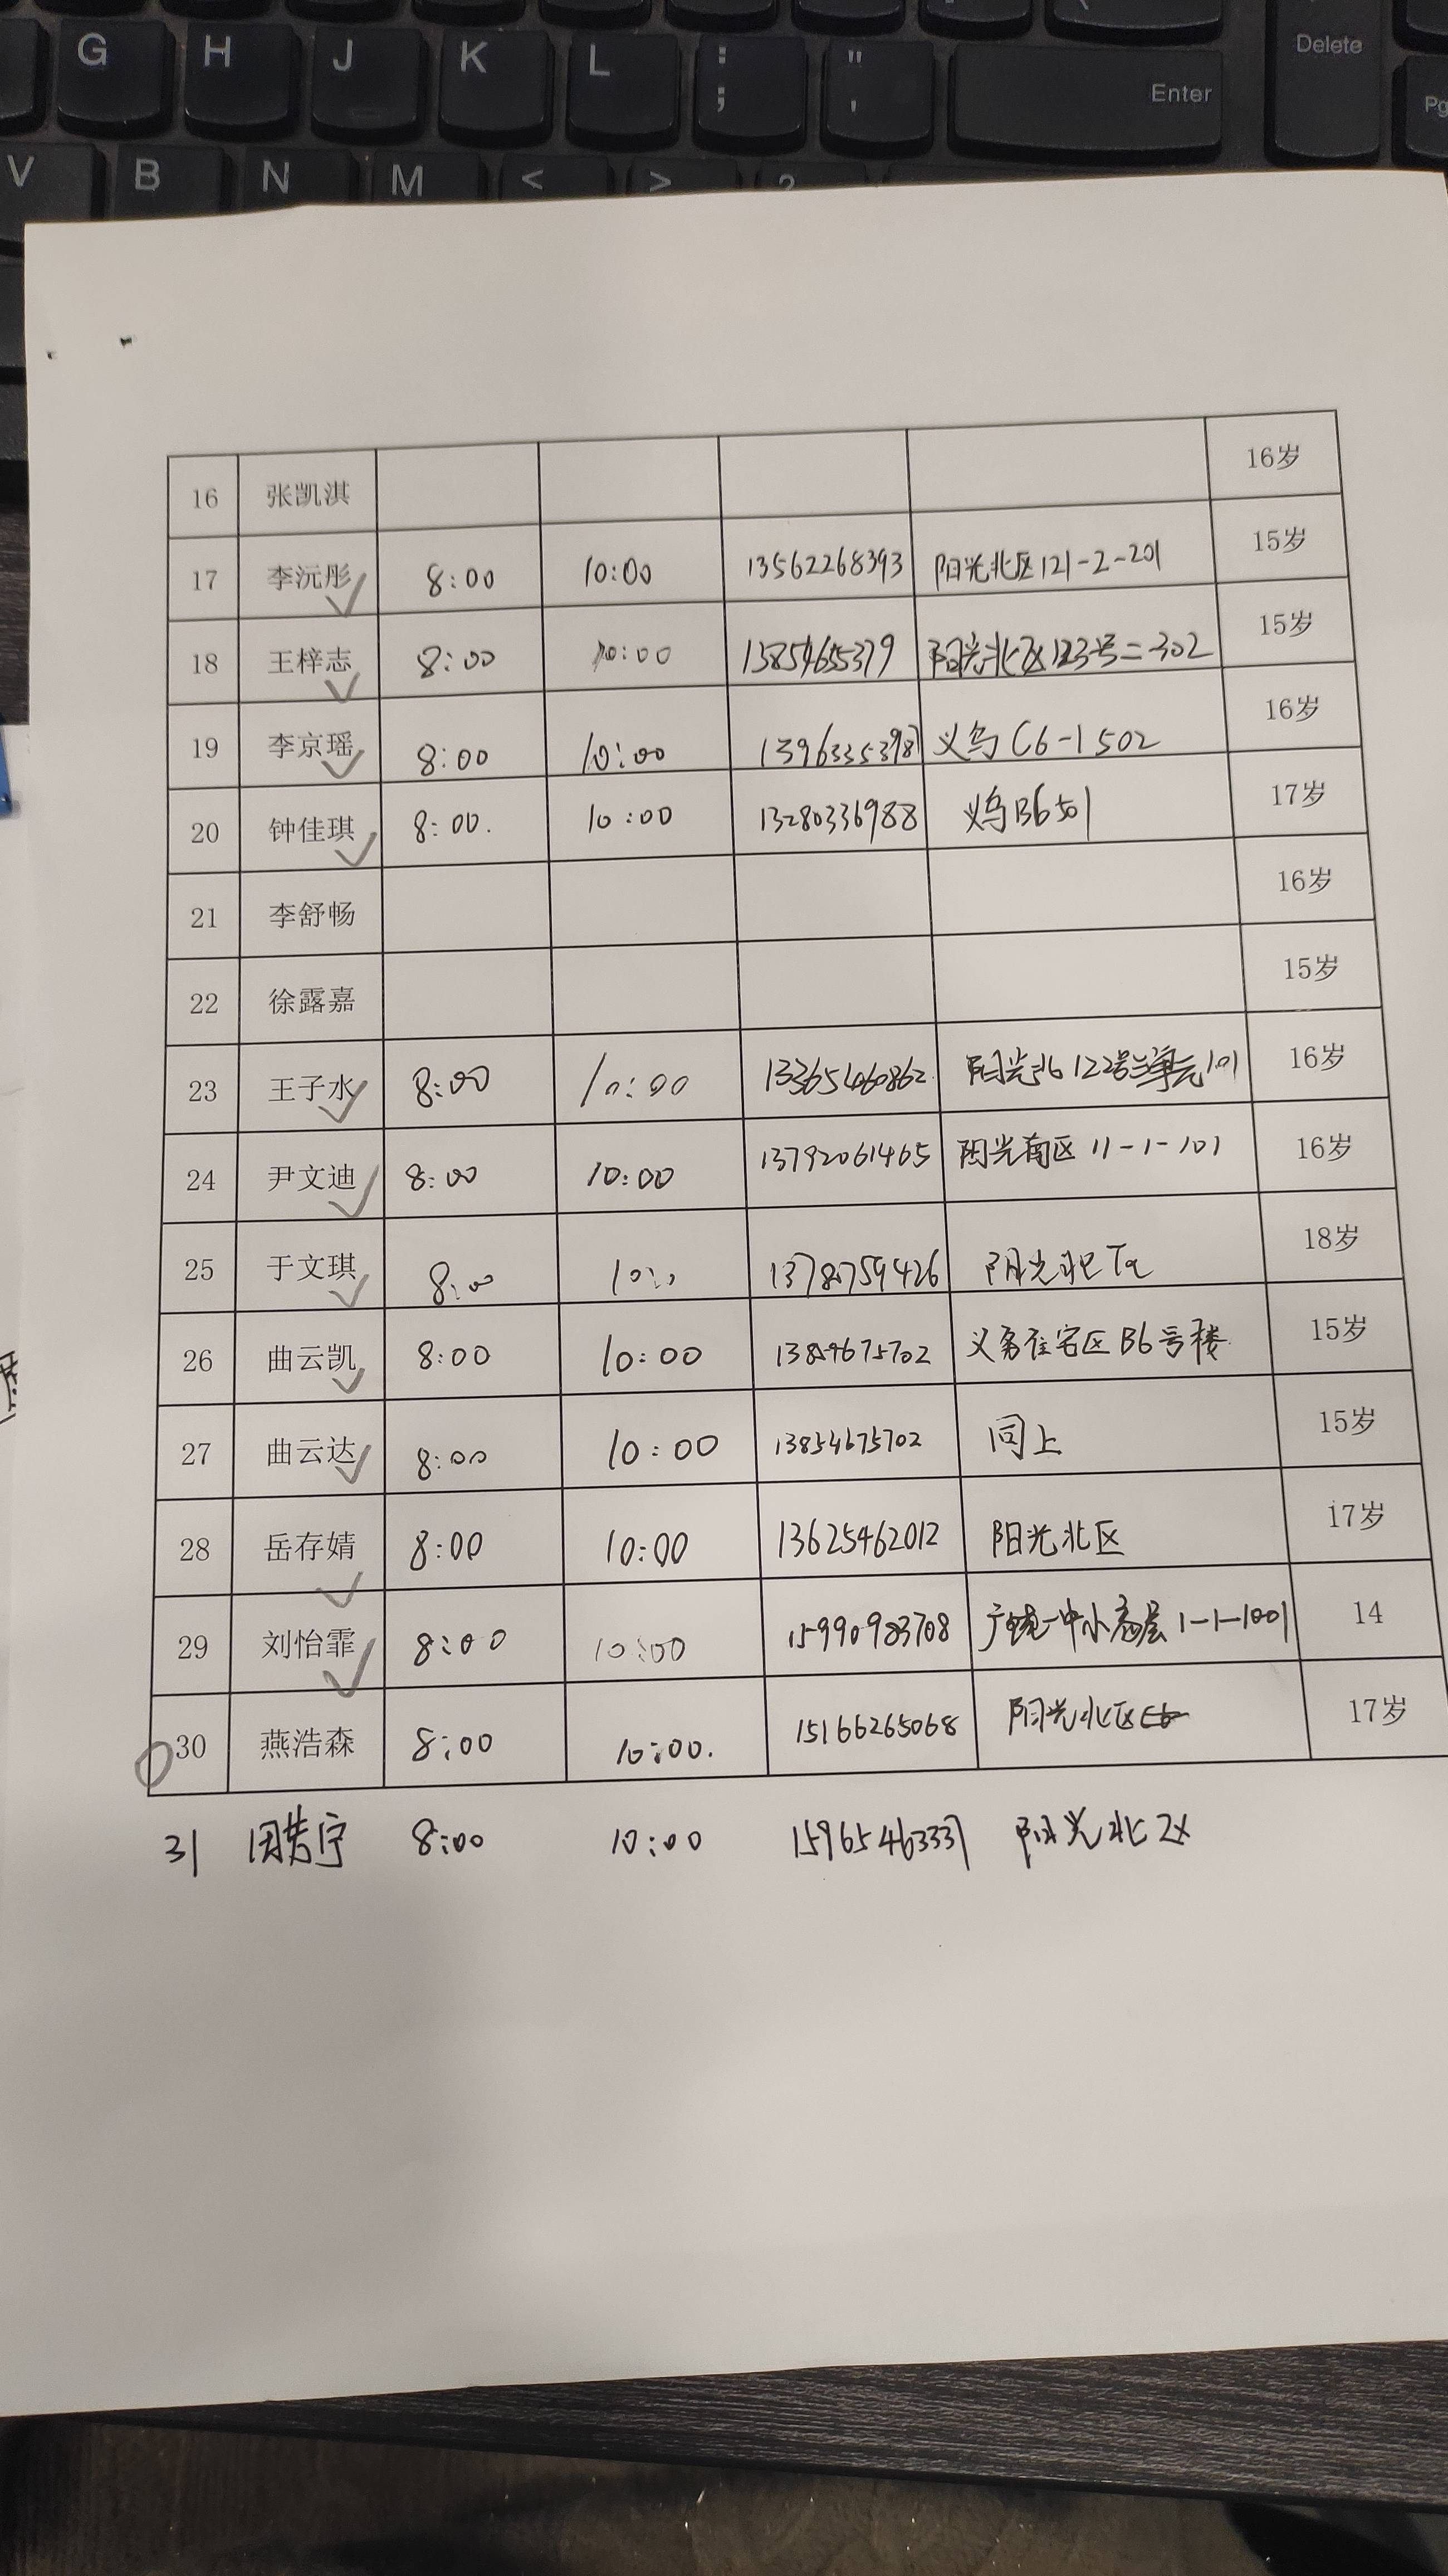 G H J K L : ; " ' Enter Delete Pg
V B N M < >
16 张凯淇 16岁
17 李沅彤 8:00 10:00 13562268393 阳光北区121-2-201 15岁
18 王梓志 8:00 10:00 13854655379 阳光北区123号二-302 15岁
19 李京瑶 8:00 10:00 义乌C6-1 502 16岁
20 钟佳琪 8:00. 10:00 13280336988 义乌B6501 17岁
21 李舒畅 16岁
22 徐露嘉 15岁
23 王子水 8:00 10:00 13365460862 阳光北122号 单元101 16岁
24 尹文迪 8:00 10:00 13792061465 阳光南区11-1-101 16岁
25 于文琪 8:00 13780759426 阳光 18岁
26 曲云凯 8:00 10:00 13854675702 义务住宅区B6号楼 15岁
27 曲云达 8:00 10:00 13854675702 同上 15岁
28 岳存婧 8:00 10:00 13625462012 阳光北区 17岁
29 刘怡霏 8:00 10:00 15990983708 一中小高层1-1-1001 14
30 燕浩森 8:00 10:00. 15166265068 阳光北区 17岁
31 8:00 10:00 15965463337 阳光北区